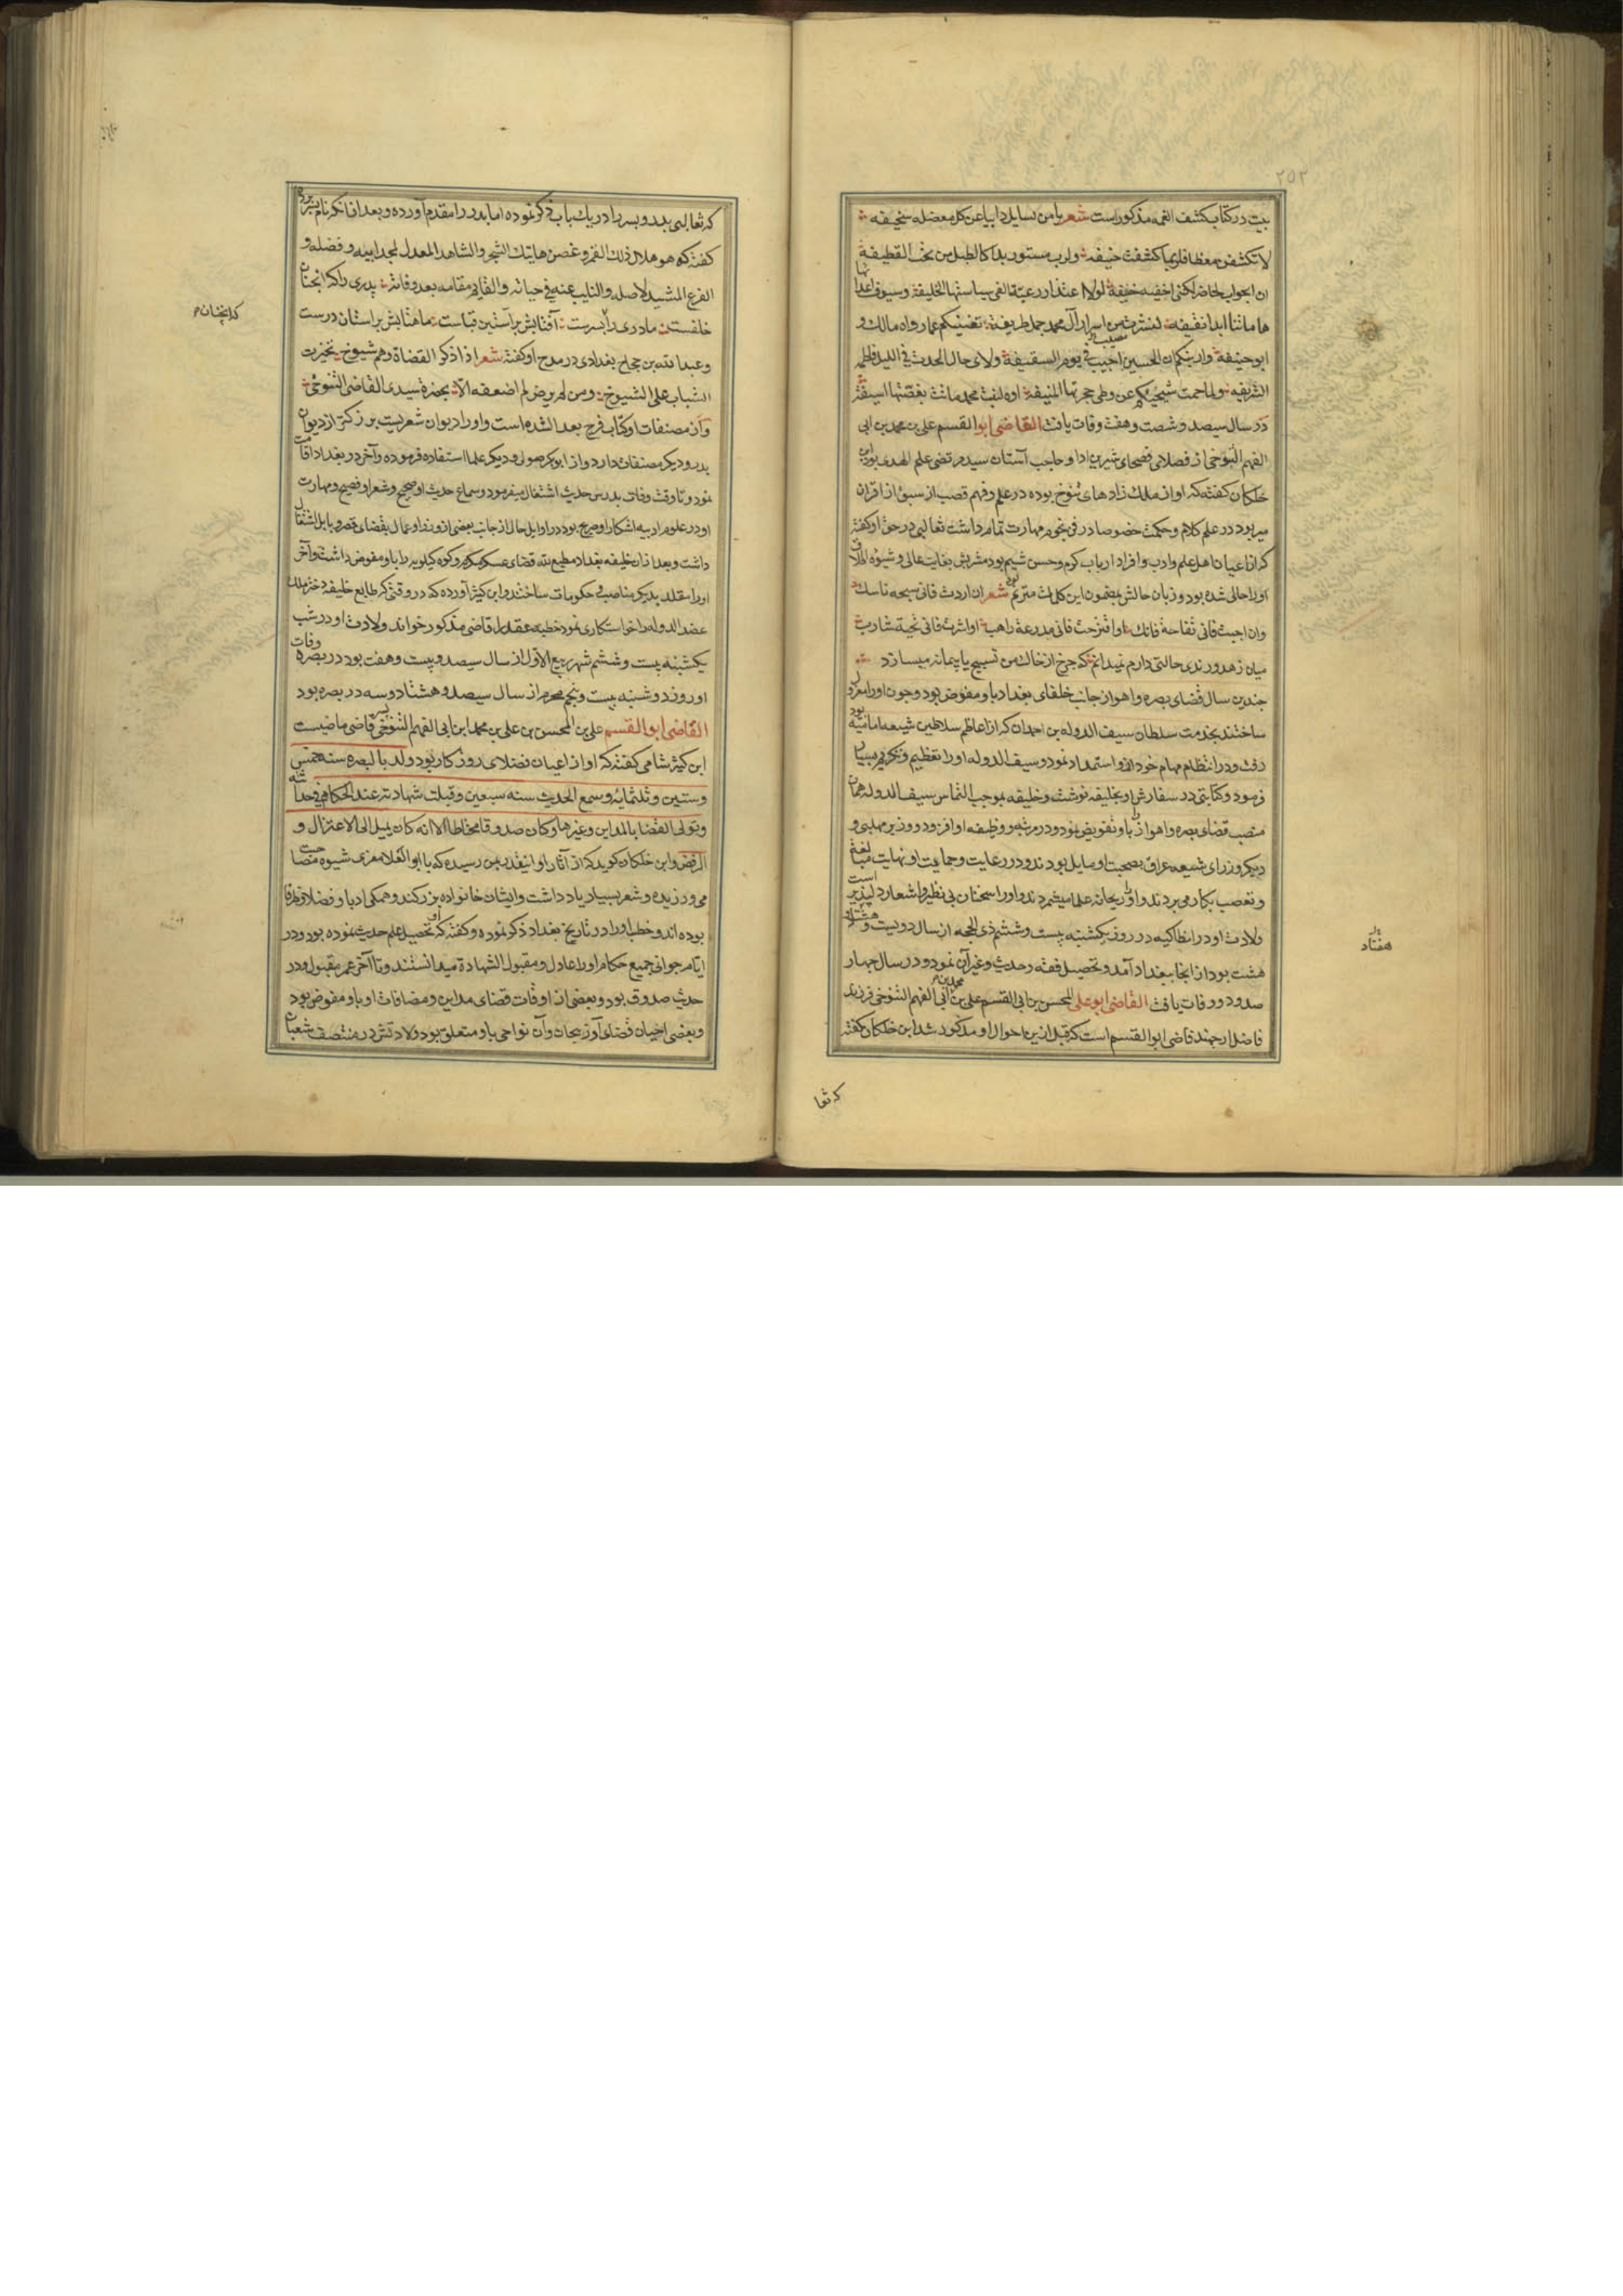 ۲۵۲
بیت در کتاب کشف الغمه مذکور است شعر یا من یسایل دایبا عن کل معضله سخیفه
لا تکشفن مغطا فلربما کشفت خیفه ولرب مستور بدا کالطبل من تحت القطیفة
ان الجواب لحاضر لکنی اخفیه خیفة لولا اعتذار رعیة القی سیاستها الخلیفة وسیوف اعدا بها
هاماتنا ابدا نقیفه لنشرت من اسرار آل محمد جملا طریفة تغنیکم عما رواه مالک و
ابو حنیفة واریتکم ان الحسین اصیب فی یوم السقیفة ولای حال الحدت فی اللیل فاطمه
الشریفه ولما حمت شیخیکم عن وطی حجرتها المنیفة اوه لبنت محمد ماتت بغصتها اسیفة
در سال سیصد و شصت و هفت وفات یافت القاضی ابو القسم علی بن محمد بن ابی
الفهم التنوخی از فضلای فصحای شیرین ادا و حاجب آستان سید مرتضی علم الهدی بود ابن
خلکان کفته که او از ملک زادهای تنوخ بوده در علم و فهم قصب از سبق از اقران
میربود در علم کلام و حکمت خصوصا در فن نجوم مهارت تمام داشت ثعالبی در حق او کفته
که از اعیان اهل علم و ادب و افراد ارباب کرم و حسن شیم بود مشربش بغایت عالی و شیوه
او را حالی شده بود و زبان حالش بمضمون این کلمات مترنم بود شعر ان اردت فانی سبحه ناسک
وان احببت فانی تفاحة فاتک او اقترحت فانی مدرعة راهب او اثرت فانی تحیة شارب
میان زهد و رندی حالتی دارم نمیدانم که چرخ از خاک من تسبیح یا پیمانه میسازد
چندین سال قضای بصره و اهواز جانب خلفای بغداد باو مفوض بود و چون او را معزول
ساختند بخدمت سلطان سیف الدوله بن احمدان که از اعاظم سلاطین شیعه امامیه بود
رفت و در انتظام مهام خود از او استمداد نمود و سیف الدوله او را تعظیم و تکریم
فرمود و کتابتی در سفارش او بخلیفه نوشت و خلیفه بموجب التماس سیف الدوله همان
منصب قضای بصره و اهواز را باو تفویض نمود و در مرتبه و وظیفه او افزود و وزیر مهلبی و
دیکر وزرای شیعه عراق بصحبت او مایل بودند و در رعایت و حمایت او نهایت مبالغه
و تعصب بکار می بردند و او را ریحانه علما میشمردند و او را سخنان بی نظیر و اشعار دلپذیر است
ولادت او در انطاکیه در روز یکشنبه بیست و ششم ذی الحجه از سال دویست و هشتاد و
هشت بود از انجا ببغداد آمد و تحصیل فقه و حدیث و غیر آن نمود و در سال چهار
صد و دو وفات یافت القاضی ابو علی المحسن بن ابی القسم علی بن محمد بن ابی الفهم التنوخی فرزند
فاضل ارجمند قاضی ابو القسم است که قبل ازین احوال او مذکور شد ابن خلکان کفته
هفتاد
که ثعا
که ثعالبی پدر و پسر را در یک باب ذکر نموده اما پدر را مقدم آورده و بعد از ذکر نام پسر
کفته که هو هلال ذلک القمر و غصن هاتیک الشجر والشاهد المعدل لمجد ابیه و فضله و
الفرع المشید لاصله والنایب عنه فی حیاته والقایم مقامه بعد وفاته پدری را که آنچنان
خلفست مادری را پسرست آفتابش بر آستین قباست ماهتابش بر آستان درست
و عبدالله بن حجاج بغدادی در مدح او کفته شعر اذا ذکر القضاة وهم شیوخ تخیرت
الشباب علی الشیوخ ومن لم یرض لم اصفعه الا بحضرة سیدی القاضی التنوخی
و از مصنفات او کتاب فرج بعد الشده است و او را دیوان شعریست بزرکتر از دیوان
پدر و دیکر مصنفات دارد و از ابو بکر صولی و دیکر علما استفاده فرموده و آخر در بغداد اقامت
نمود و تا وقت وفات بدرس حدیث اشتغال میفرمود و سماع حدیث او صحیح و شعر او فصیح و مهارت
او در علوم ادبیه اشکارا و صریح بود در اوایل حال از جانب بعضی از وزرا و عمال بقضای قصر و بابل اشتغال
داشت و بعد از ان خلیفه بغداد مطیع لله قضای عسکر مکرم و کوه کیلویه را باو مفوض داشت و آخر
او را متقلد بدیکر مناصب و حکومات ساختند و ابن کثیر آورده که در وقتی که طایع خلیفه دختر ملک
عضد الدوله را خواستکاری نمود خطبه عقد را قاضی مذکور خواند ولادت او در شب
یکشنبه بیست و ششم شهر ربیع الاول از سال سیصد و بیست و هفت بود در بصره وفات
او روز دوشنبه بیست و پنجم محرم از سال سیصد و هشتاد و سه در بصره بود
القاضی ابو القسم علی بن المحسن بن علی بن محمد ابن ابی الفهم التنوخی پسر قاضی ماضیست
ابن کثیر شامی کفته که او از اعیان فضلای روزکار بود ولد بالبصره سنه خمس
وستین وثلثمایه وسمع الحدیث سنه سبعین وقبلت شهادته عند الحکام فی حداثته
وتولی القضا بالمداین وغیرها وکان صدوقا محتاطا الا انه کان یمیل الی الاعتزال و
الرفض و ابن خلکان کوید که از آثار او اینقدر بمن رسیده که با ابو العلا معری شیوه مصاحبت
می ورزیده و شعر بسیار یاد داشت و ایشان خانواده بزرکند و همکی ادبا و فضلا و ظرفا
بوده اند و خطیب او را در تاریخ بغداد ذکر نموده و کفته که او تحصیل علم حدیث نموده بود و در
ایام جوانی جمیع حکام او را عادل و مقبول الشهادة میدانستند و تا آخر عمر مقبول و در
حدیث صدوق بود و بعضی از اوقات قضای مداین و مضافات او باو مفوض بود
و بعضی احیان قضای آذربیجان و آن نواحی باو متعلق بود ولادتش در منتصف شعبان
که انچنان